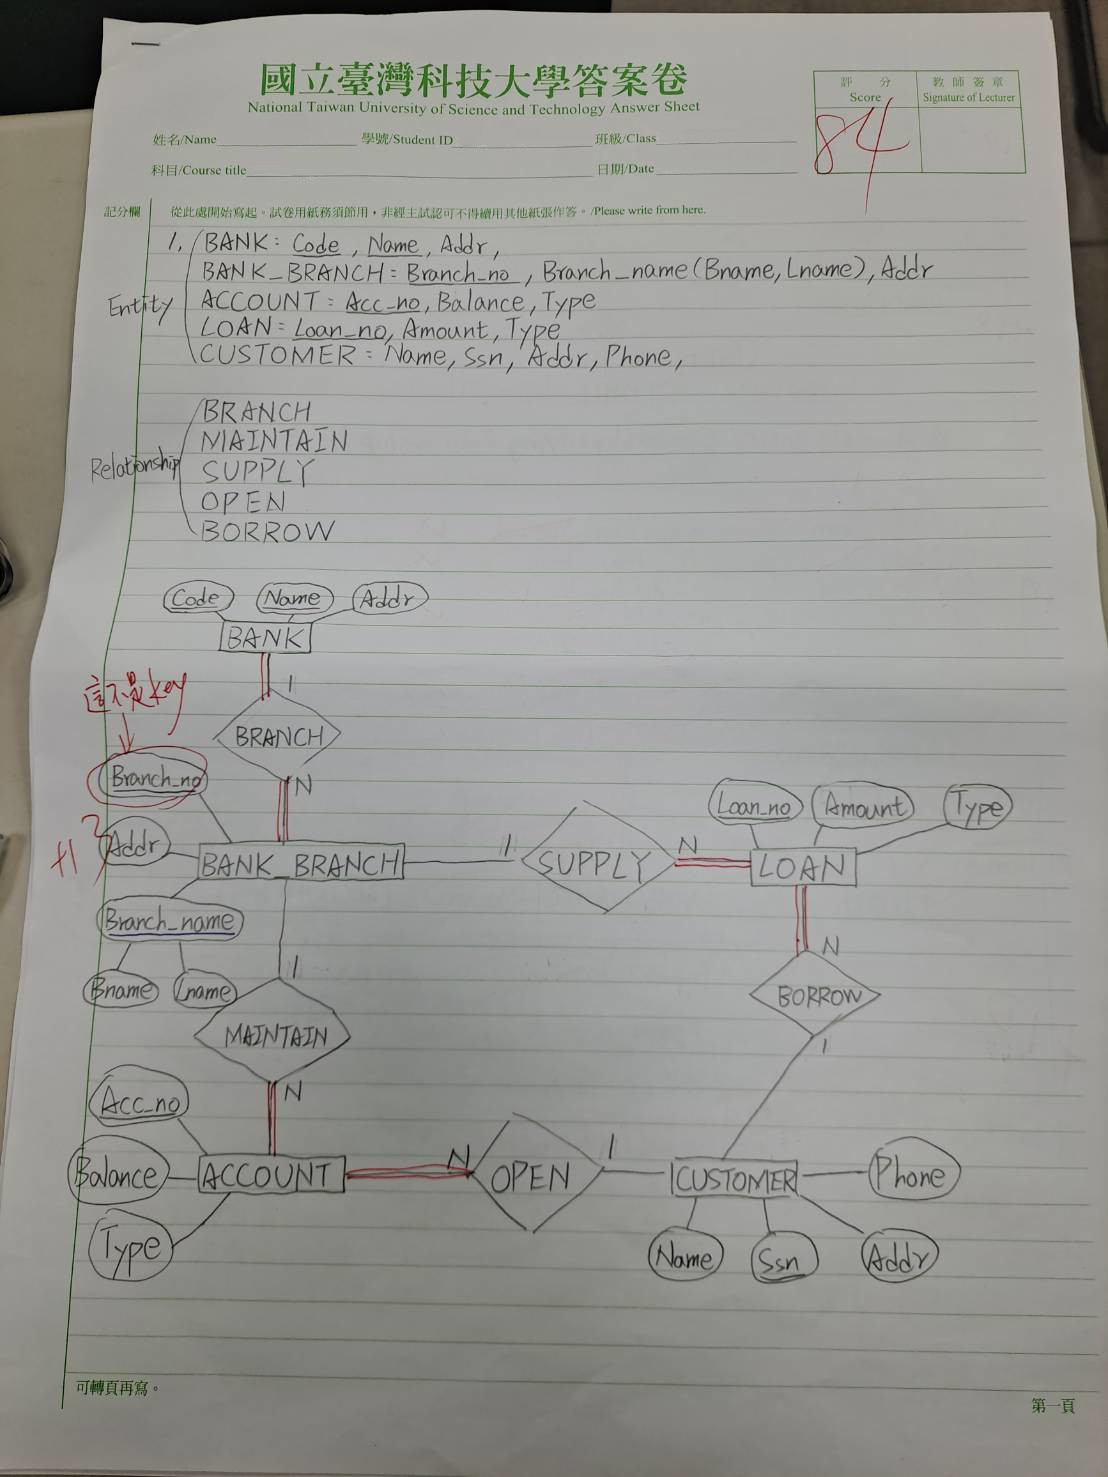 國立臺灣科技大學答案卷
National Taiwan University of Science and Technology Answer Sheet
評 分
Score
教師簽章
Signature of Lecturer
84
姓名/Name 學號/Student ID 班級/Class
科目/Course title 日期/Date
記分欄 從此處開始寫起。試卷用紙務須節用,非經主試認可不得續用其他紙張作答。/Please write from here.
1. BANK: Code, Name, Addr,
BANK_BRANCH: Branch_no, Branch_name(Bname, Lname), Addr
Entity ACCOUNT: Acc_no, Balance, Type
LOAN: Loan_no, Amount, Type
CUSTOMER: Name, Ssn, Addr, Phone,
BRANCH
MAINTAIN
Relationship SUPPLY
OPEN
BORROW
Code Name Addr
BANK
這不是key
1
BRANCH
Branch_no N
Loan_no Amount Type
Addr
BANK_BRANCH 1 SUPPLY N LOAN
Branch_name
N
Bname Lname 1
BORROW
MAINTAIN
1
N
Acc_no
Balance ACCOUNT N OPEN 1 CUSTOMER Phone
Type
Name Ssn Addr
可轉頁再寫。
第一頁